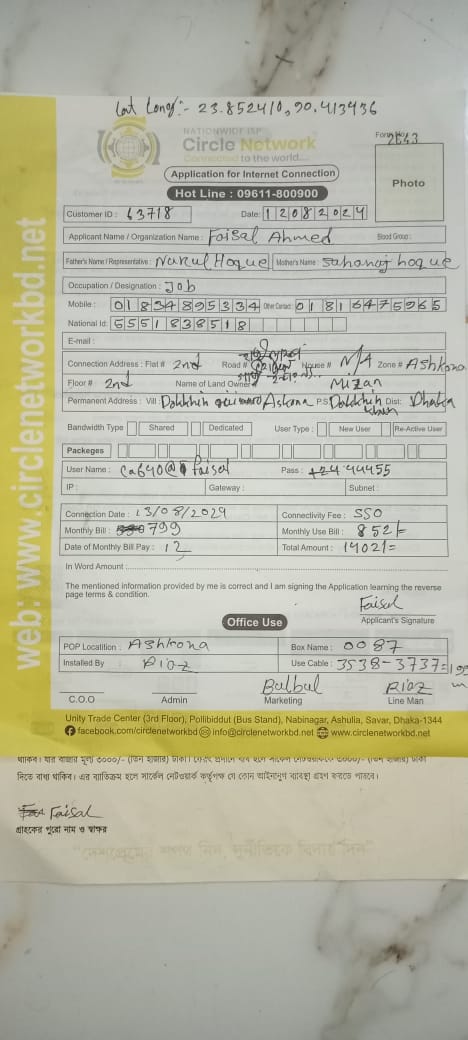 Lat Long:- 23.852410,90.413436
NATIONWIDE ISP
Circle Network
Connected to the world...
Form No 2643
Application for Internet Connection
Hot Line : 09611-800900
Photo
Customer ID : 63718 Date: 12082024
Applicant Name / Organization Name : Faisal Ahmed Blood Group :
Father's Name / Representative : Nurul Hoque Mother's Name : Sahanaj hoque
Occupation / Designation : Job
Mobile : 01834895334 Other Contact : 01816475965
National Id: 5551838518
E-mail :
Connection Address : Flat # 2nd Road # House # N/A Zone # Ashkona
Floor # 2nd Name of Land Owner Mizan
Permanent Address : Vill Dokkhin Askona P.S Dokkhin khan Dist: Dhaka
Bandwidth Type Shared Dedicated User Type : New User Re-Active User
Packeges
User Name : Ca640@ Faisal Pass : 424
IP : Gateway : Subnet :
Connection Date : 13/08/2024 Connectivity Fee : 550
Monthly Bill : 799 Monthly Use Bill : 852/=
Date of Monthly Bill Pay : 12 Total Amount : 1402/=
In Word Amount :
The mentioned information provided by me is correct and I am signing the Application learning the reverse
page terms & condition.
Faisal
Applicant's Signature
Office Use
POP Locatition : Ashkona Box Name : 0087
Installed By Riaz Use Cable : 3538-3737=199 m
Bulbul Riaz
C.O.O Admin Marketing Line Man
Unity Trade Center (3rd Floor), Pollibiddut (Bus Stand), Nabinagar, Ashulia, Savar, Dhaka-1344
facebook.com/circlenetworkbd info@circlenetworkbd.net www.circlenetworkbd.net
web: www.circlenetworkbd.net
দিতে বাধ্য থাকিব। এর ব্যতিক্রম হলে সার্কেল নেটওয়ার্ক কর্তৃপক্ষ যে কোন আইনানুগ ব্যবস্থা গ্রহণ করতে পারবে।
Faisal
গ্রাহকের পুরো নাম ও স্বাক্ষর